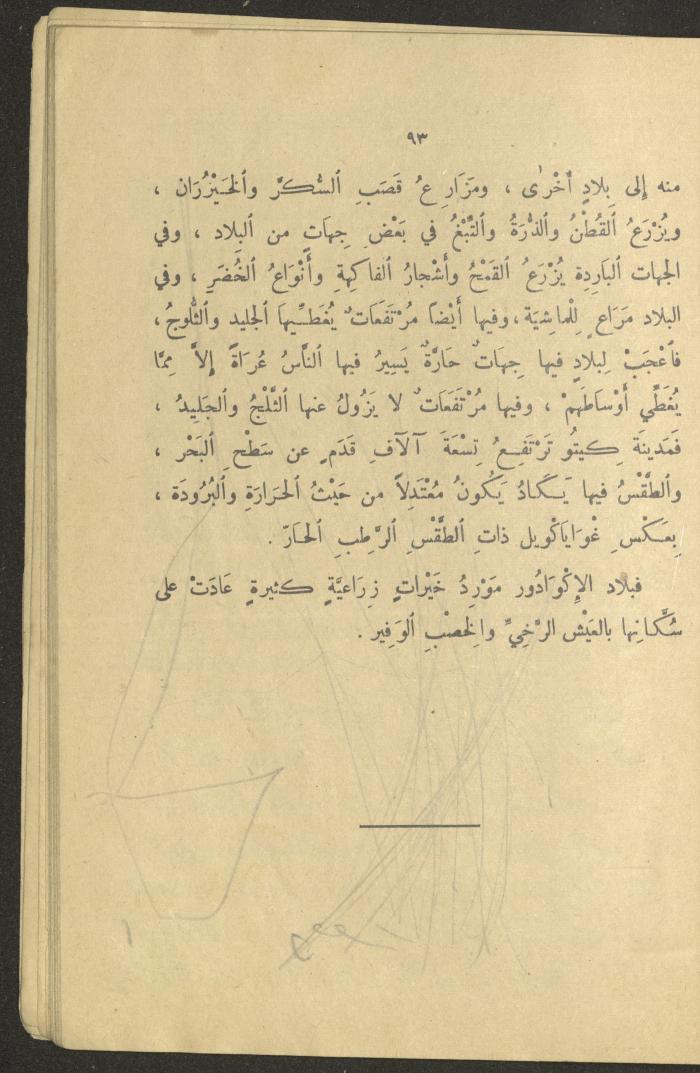 ٩٣
منه إلى بِلادٍ أُخْرٰى ، ومَزَارِعُ قَصَبِ ٱلسُّكَّرَ وٱلخَيْزُرَان ،
ويُزْرَعُ ٱلقُطْنُ وٱلذُّرَةُ وٱلتِّبْغُ في بَعْضِ جِهَاتٍ من ٱلبلاد ، وفي
الجهات ٱلبَارِدِة يُزْرَعُ ٱلقَمْحُ وأَشْجارُ ٱلفاكِهةِ وأَنْوَاعُ ٱلخُضَرِ ، وفي
البلاد مَرَاعٍ لِلْماشِيَة ، وفيها أَيْضاً مُرْتَفَعَاتٌ يُغَطِّيهَا ٱلجليد وٱلثُّلوجُ ،
فٱعْجَبْ لِبلادٍ فيها جِهَاتٌ حَارَّةٌ يَسِيرُ فيها ٱلنَّاسُ عُرَاةً إِلاَّ مِمَّا
يُغَطِّي أَوْسَاطَهِمْ ، وفيها مُرْتَفَعَاتٌ لا يَزُولُ عنها ٱلثَّلْجُ وٱلجَليدُ ،
فَمَدينَة كِيتُو تَرْتَفِعُ تِسْعَةَ آلَافِ قَدَمٍ عن سَطْحِ ٱلبَحْر ،
وٱلطَّقْسُ فيها يَكَادُ يَكُونُ مُعْتَدِلاً من حَيْثُ ٱلحَرَارَةِ وٱلبُرُودَة ،
بِعَكْسِ غْوَايَاكْويل ذاتِ ٱلطَّقْسِ ٱلرَّطِبِ ٱلحَارّ .
فبلاد الإِكْوَادُور مَوْرِدُ خَيْراتٍ زِرَاعيَّةٍ كثيرةٍ عَادَتْ على
سُكَّانِها بالعَيْش الرَّخِيِّ والخِصْبِ ٱلوَفِير .